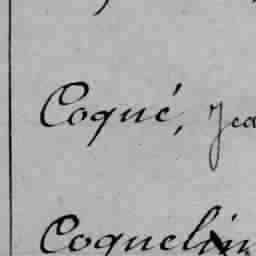 Coqué, Jea
Coquelin